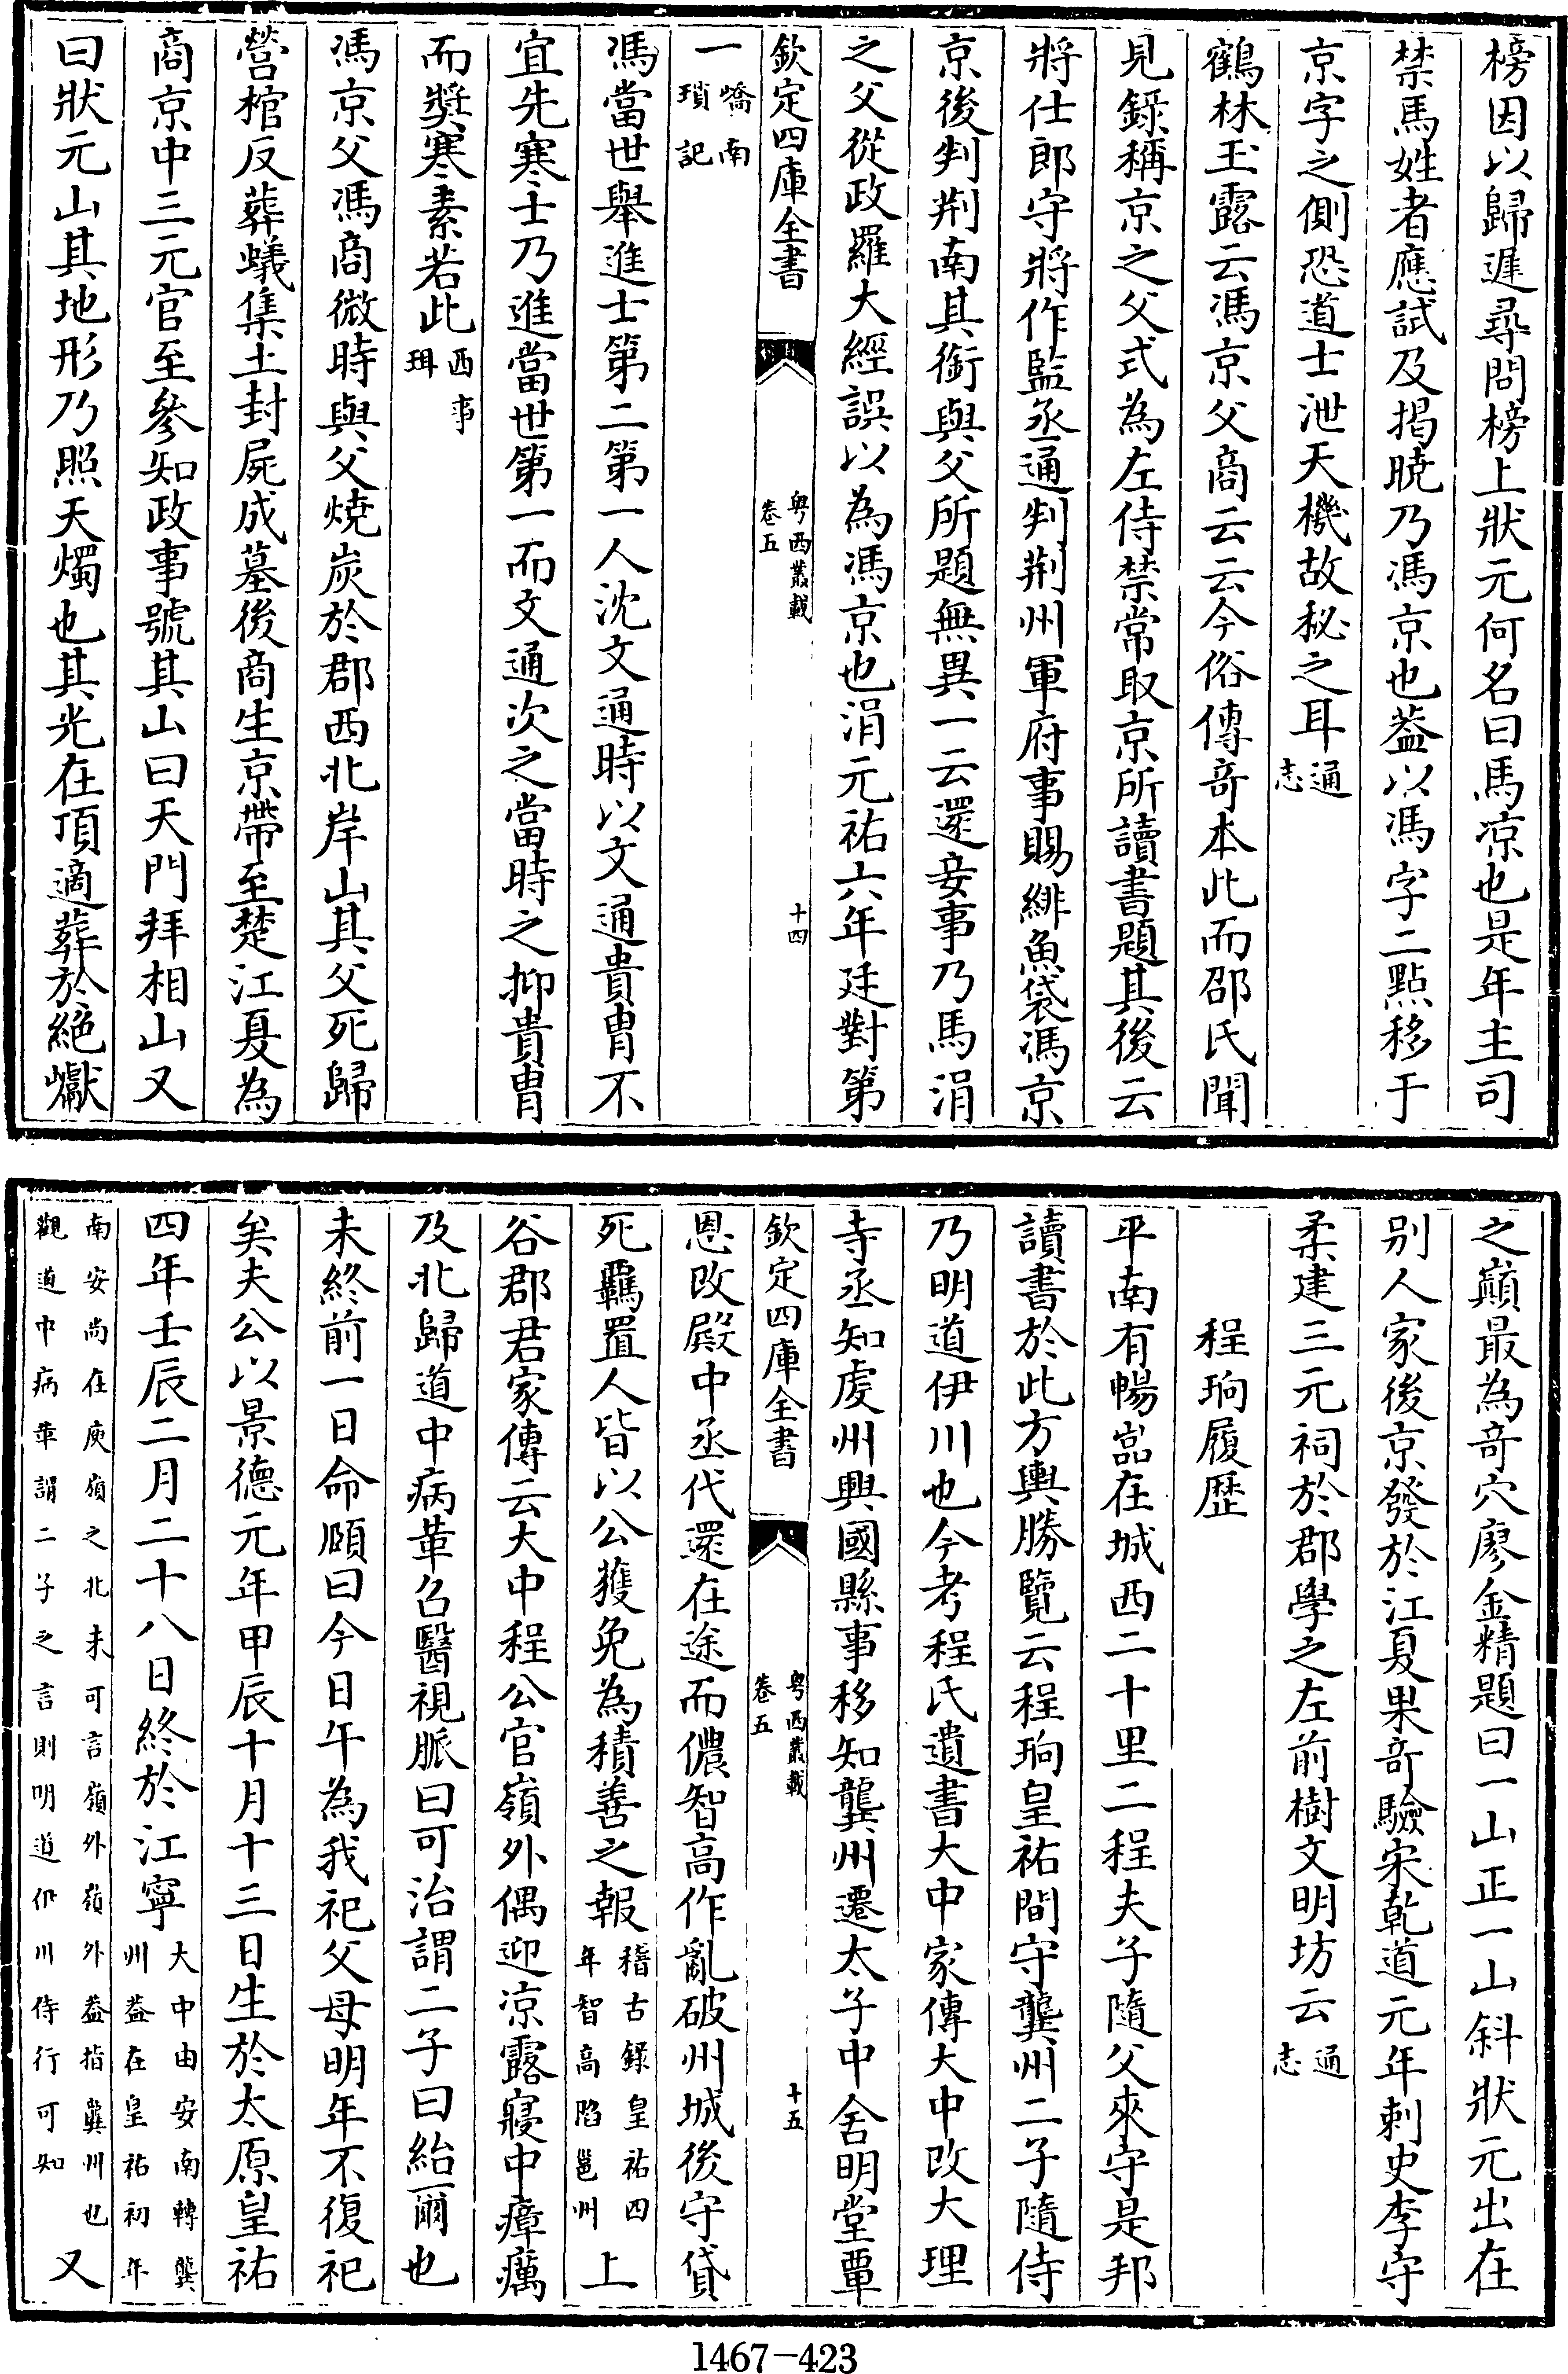 榜因以歸遲尋問榜上狀元何名曰馬凉也是年主司
禁馬姓者應試及揭曉乃馮京也葢以馮字二㸃移于
京字之側恐道士泄天機故秘之耳通志
鶴林玉露云馮京父商云云今俗傳竒本此而邵氏聞
見錄稱京之父式為左侍禁常取京所讀書題其後云
將仕郎守將作監丞通判荆州軍府事賜緋魚袋馮京
京後判荆南其銜與父所題無異一云還妾事乃馬涓
之父從政羅大經誤以為馮京也涓元祐六年廷對第
欽定四庫全書
粤西叢載
卷五
十四
一嶠南瑣記
馮當世舉進士第二第一人沈文通時以文通貴胄不
宜先寒士乃進當世第一而文通次之當時之抑貴胄
而奬寒素若此西事珥
馮京父馮商微時與父燒炭於郡西北岸山其父死歸
營棺反葬蟻集土封屍成墓後商生京帶至楚江夏為
商京中三元官至參知政事號其山曰天門拜相山又
曰狀元山其地形乃照天燭也其光在頂適葬於絶巘
之巔最為竒穴廖金精題曰一山正一山斜狀元出在
别人家後京發於江夏果竒驗宋乾道元年刺史李守
柔建三元祠於郡學之左前樹文明坊云通志
程珦履歴
平南有暢巖在城西二十里二程夫子隨父來守是邦
讀書於此方輿勝覽云程珦皇祐間守龔州二子隨侍
乃明道伊川也今考程氏遺書大中家傳大中改大理
寺丞知虔州興國縣事移知龔州遷太子中舍明堂覃
欽定四庫全書
粤西叢載
卷五
十五
恩改殿中丞代還在途而儂智高作亂破州城後守貸
死羈置人皆以公獲免為積善之報稽古錄皇祐四年智高陷邕州上
谷郡君家傳云大中程公官嶺外偶迎凉露寢中瘴癘
及北歸道中病革召醫視脈曰可治謂二子曰紿爾也
未終前一日命頤曰今日午為我祀父母明年不復祀
矣夫公以景德元年甲辰十月十三日生於太原皇祐
四年壬辰二月二十八日終於江寧大中由安南轉龔州葢在皇祐初年
南安尚在庾嶺之北未可言嶺外嶺外葢指龔州也觀道中病革謂二子之言則明道伊川侍行可知又
1467-423